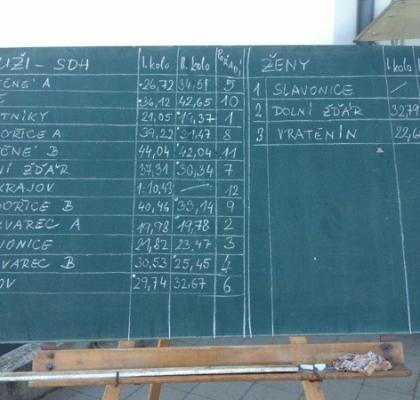 UŽI - SDH I. kolo II. kolo POŘADÍ
ČNÉ A 26,72 34,51 5
36,12 42,65 10
TNÍKY 21,05 19,37 1
OŘICE A 39,22 31,47 8
ČNÉ B 44,04 42,04 11
NÍ ŽĎÁR 37,31 30,34 7
KRAJOV 1:10,43 — 12
OŘICE B 40,46 33,14 9
VAREC A 19,98 19,78 2
VONICE 81,82 23,47 3
VAREC B 30,53 25,45 4
OV 29,74 32,67 6
ŽENY I. kolo
1 SLAVONICE /
2 DOLNÍ ŽĎÁR 32,79
3 VRATĚNÍN 22,6